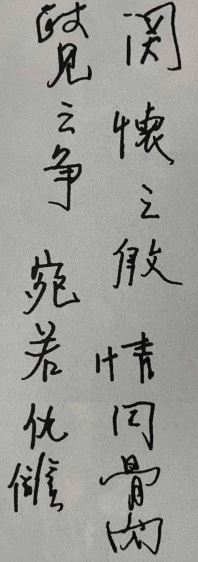 関懷之情同骨肉
歧見之争宛若仇讎